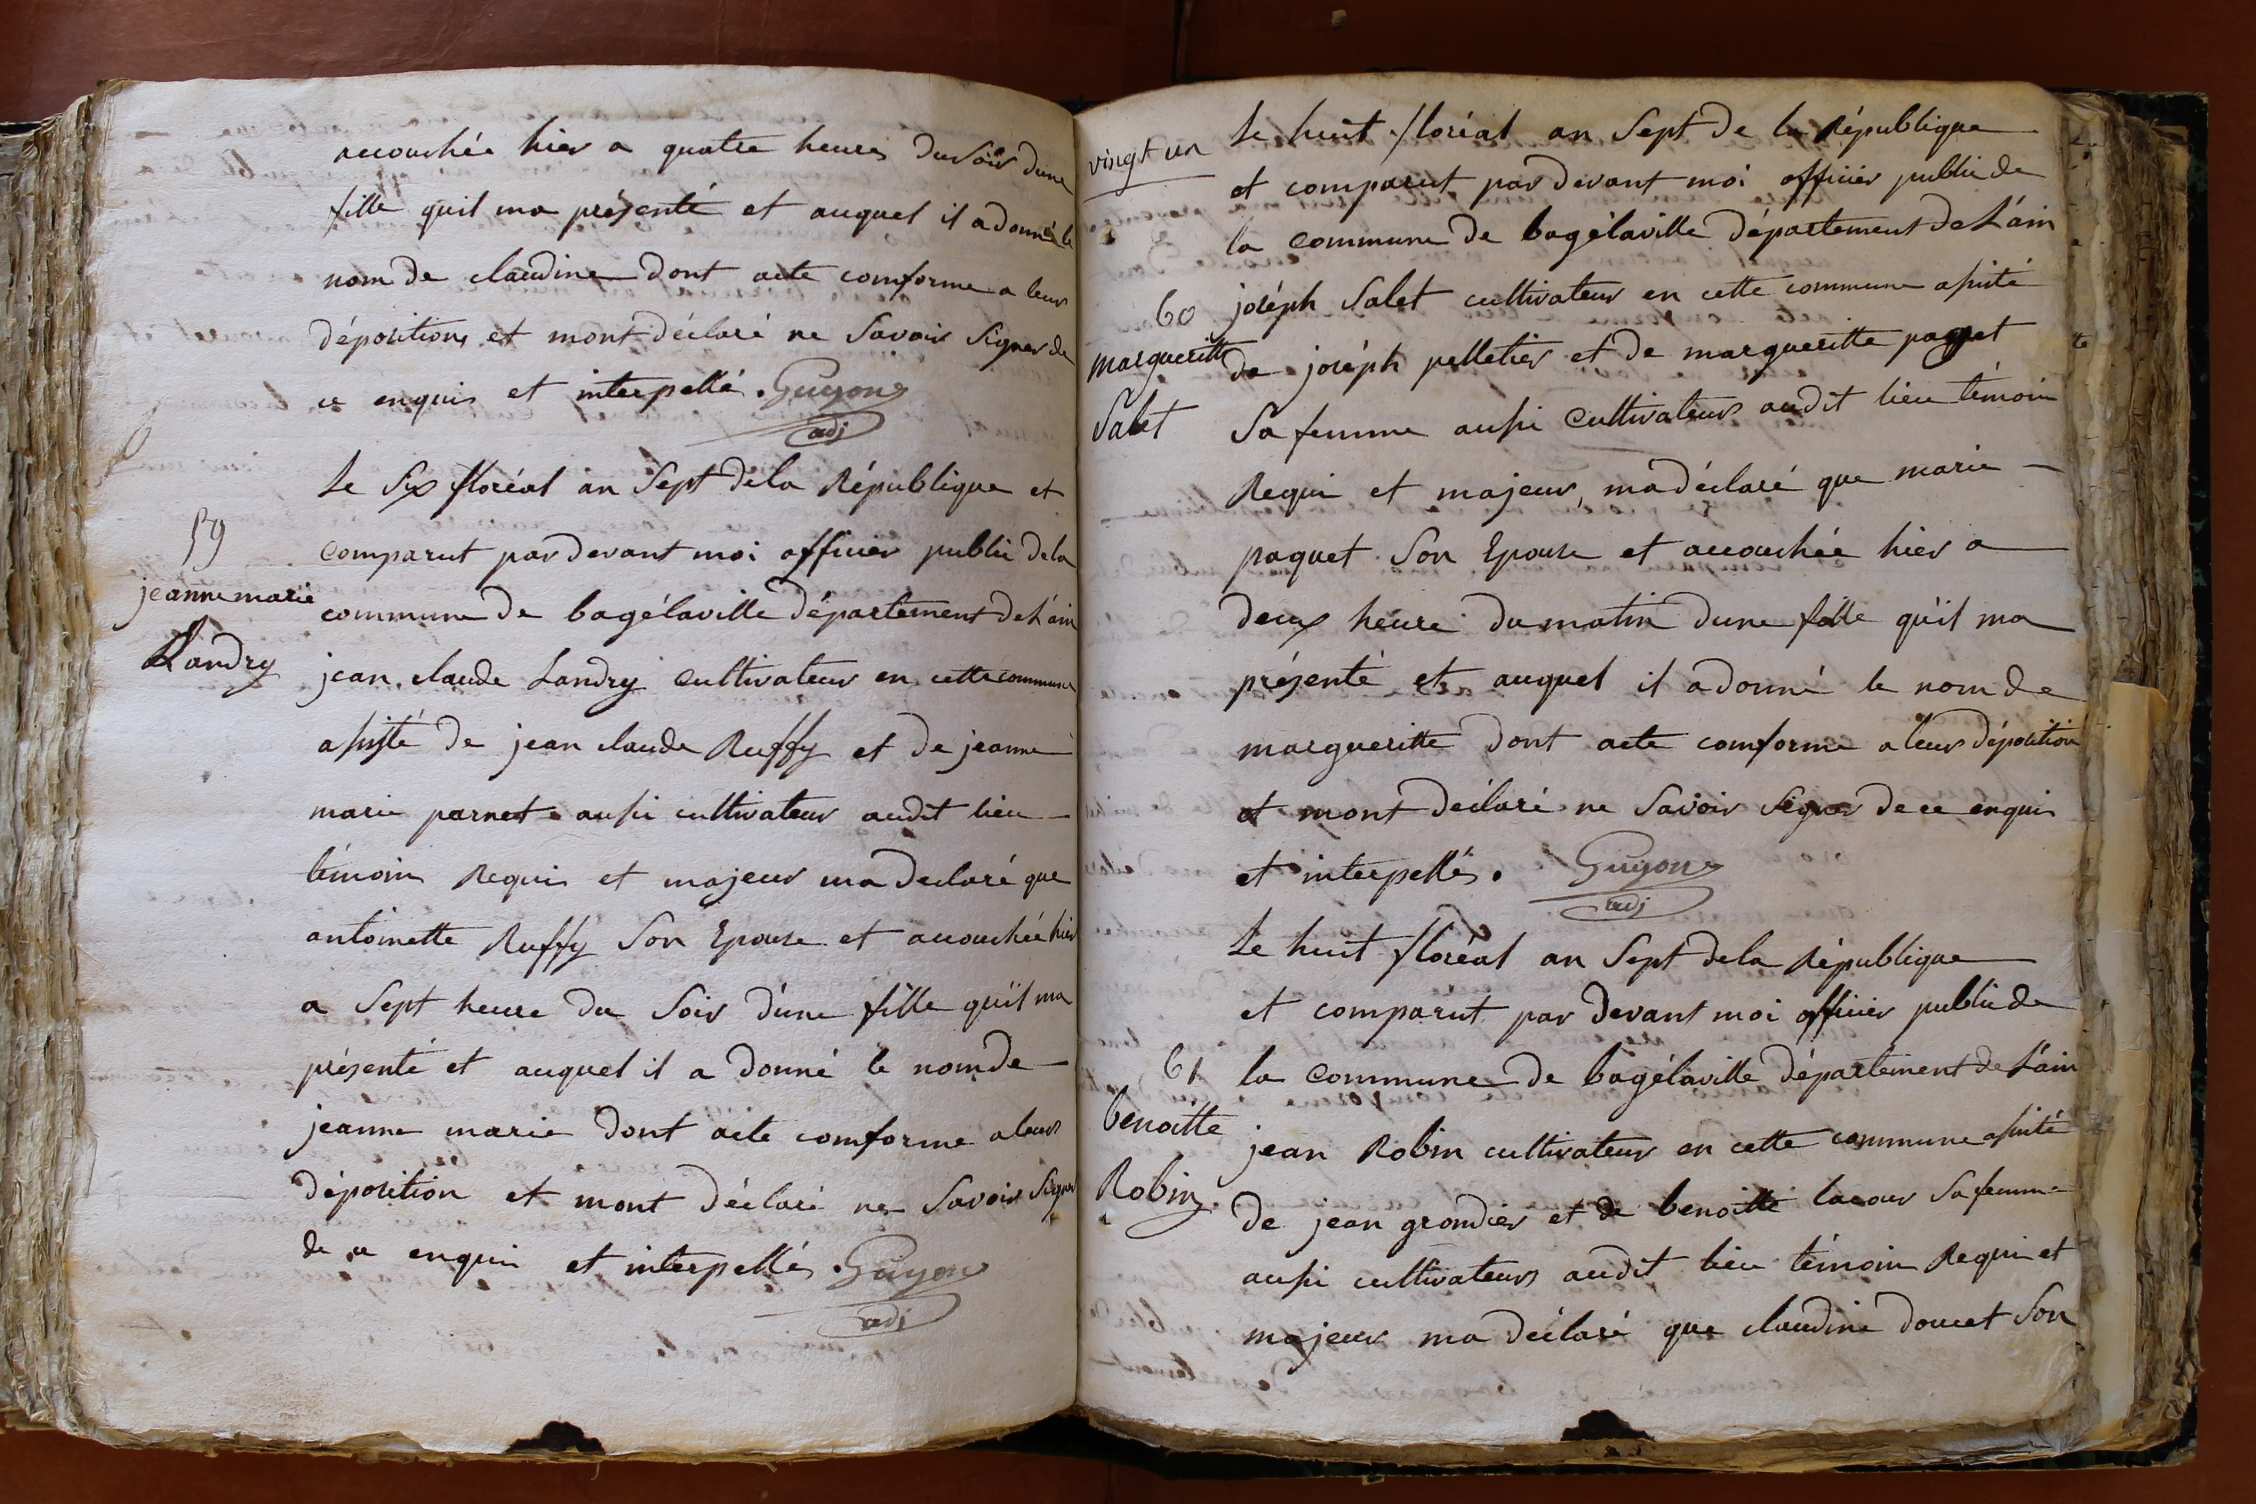 accouchée hier a quatre heures du soir dune
fille quil ma présenté et auquel il a donné le
nom de claudine dont acte comforme a leur
dépositions et mont déclaré ne Savoir Signer de
ce enquis et interpellé. Guyon
adj
Le Six floréal an Sept dela République et
59
comparut par devant moi officier public dela
jeanne marie
commune de bagélaville département de L'ain
Landry
jean claude Landry cultivateur en cette commune
assisté de jean claude Ruffy et de jeanne
marie parnet aussi cultivateur audit lieu
témoins Requis et majeur ma declaré que
antoinette Ruffy Son Epouse et accouchée hier
a Sept heure du Soir d'une fille quil ma
présenté et auquel il a donné le nom de
jeanne marie dont acte comforme a leur
déposition et mont déclaré ne Savoir Signer
de ce enquis et interpellés. Guyon
adj
vingt un
Le huit floréal an Sept de la République
et comparut par devant moi officier public de
la commune de bagélaville département de L'ain
60
joséph Salet cultivateur en cette commune assisté
margueritte
de joséph pelletier et de margueritte paquet
Salet
Sa femme aussi cultivateurs audit lieu témoin
Requi et majeur, ma déclaré que marie
paquet Son Epouse et accouchée hier a
deux heure du matin dune fille qu'il ma
présenté et auquel il a donné le nom de
margueritte dont acte comforme a leur déposition
et mont déclaré ne Savoir Signer de ce enquis
et interpellés. Guyon
adj
Le huit floréal an Sept dela République
et comparut par devant moi officier public de
61
la commune de bagélaville département de L'ain
benoitte
jean Robin cultivateur en cette commune assisté
Robin
de jean grondier et de benoitte lacour Sa femme
aussi cultivateurs audit lieu témoin Requis et
majeur ma déclaré que claudine doucet Son